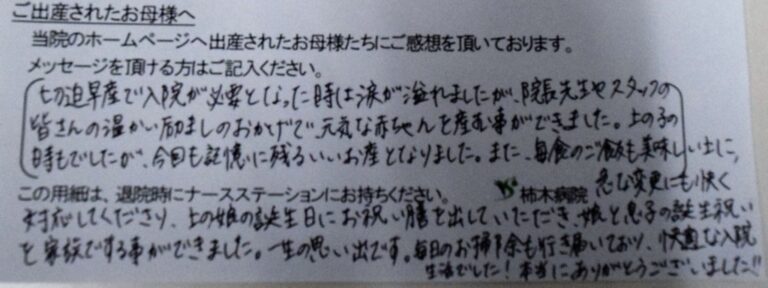 ご出産されたお母様へ
当院のホームページへ出産されたお母様たちにご感想を頂いております。
メッセージを頂ける方はご記入ください。
切迫早産で入院が必要となった時は涙が溢れましたが、院長先生やスタッフの
皆さんの温かい励ましのおかげで、元気な赤ちゃんを産む事ができました。上の子の
時もでしたが、今回も記憶に残るいいお産となりました。また、毎食のご飯も美味しい上に、
この用紙は、退院時にナースステーションにお持ちください。
柿木病院
急な変更にも快く
対応してくださり、上の娘の誕生日にお祝い膳を出していただき、娘と息子の誕生祝い
を家族でする事ができました。一生の思い出です。毎日のお掃除も行き届いており、快適な入院
生活でした!本当にありがとうございました!!